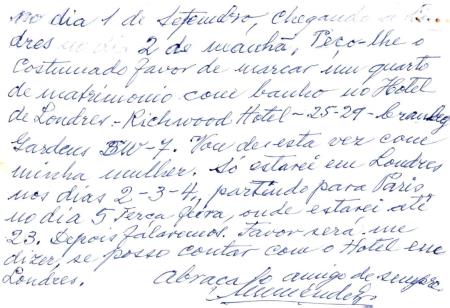 no dia 1 de Setembro, chegando a Lon-
dres no dia 2 de manhã, Peço-lhe o
costumado favor de marcar um quarto
de matrimonio com banho no Hotel
de Londres - Richwood Hotel - 25-29 -
Gardens SW-7. Vou desta vez com
minha mulher. Só estarei em Londres
nos dias 2-3-4, partindo para Paris
no dia 5 Terça feira, onde estarei até
23. Depois falaremos. Favor será me
dizer, se posso contar com o Hotel em
Londres.
Abraça o amigo de sempre